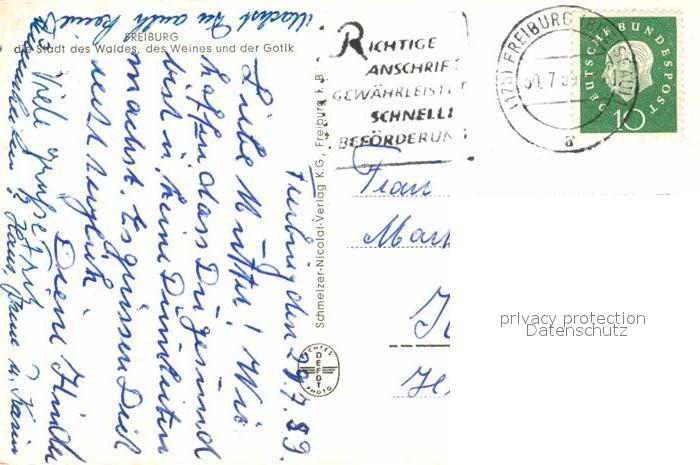 FREIBURG
die Stadt des Waldes, des Weines und der Gotik
RICHTIGE
ANSCHRIF
GEWÄHRLEISTET
SCHNELLE
BEFÖRDERUNG
(17b) FREIBURG (BREISGAU)
30.7.59
a
DEUTSCHE BUNDESPOST
10
Schmelzer-Nicolai-Verlag K.G., Freiburg i. B.
ECHTES
DEFOT
PHOTO
Freiburg, den 29.7.59.
Liebe Mutter! Wir
hoffen dass Du gesund
bist u. keine Dummheiten
machst. Es grüssen Dich
recht herzlich
Deine Kinder
Hans, u. Karin
Viele Grüße
machst Du auch keine
Frau
Mar
privacy protection
Datenschutz